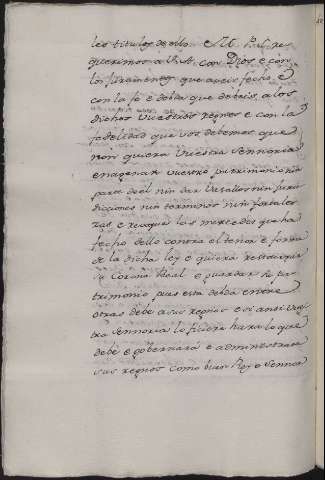 les titulos dello e N. Por q̃ re
querimos a V. A. con Dios e con
los juramentos que aveis fecho, e
con la fe e debda que debeis a los
dichos Vuestros regnos e con la
fedelidad que vos debemos que
non quiera Vuestra Sennoria
enagenar vuestro patrimonio nin
parte del nin dar Vasallos nin juris
dicciones nin terminos nin fortale
zas e revoque las mercedes que ha
fecho dello contra el tenor e forma
de la dicha ley e quiera restaurar
su Corona Real e guardar su pa
trimonio, pues esta debda entre
otras debe a sus regnos e si ansi Vues
tra Sennoria lo ficiere hara lo que
debe e gobernará e administrará
sus regnos como buen Rey e Sennor